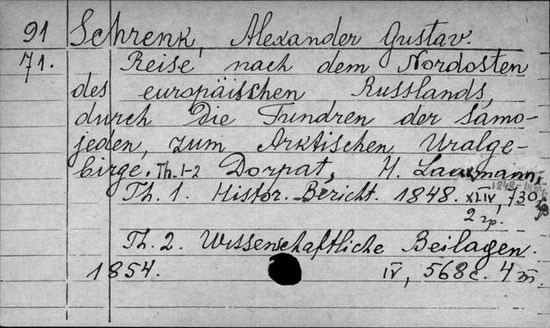 91 Schrenk, Alexander Gustav.
71. Reise nach dem Nordosten
des europäischen Russlands,
durch die Tundren der Samo-
jeden, zum Arktischen Uralge-
birge. Th. 1-2 Dorpat, H. Laakmann,
Th. 1. Histor. Bericht. 1848. XLIV, 730
2
Th. 2. Wissenschaftliche Beilagen.
1854. IV, 568 c. 4